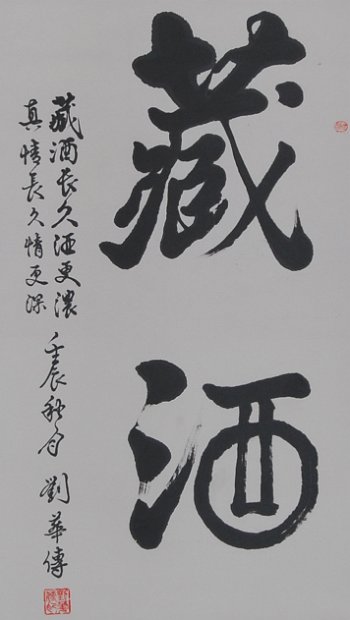 藏酒
藏酒長久酒更濃
真情長久情更深
壬辰秋月 劉華傳